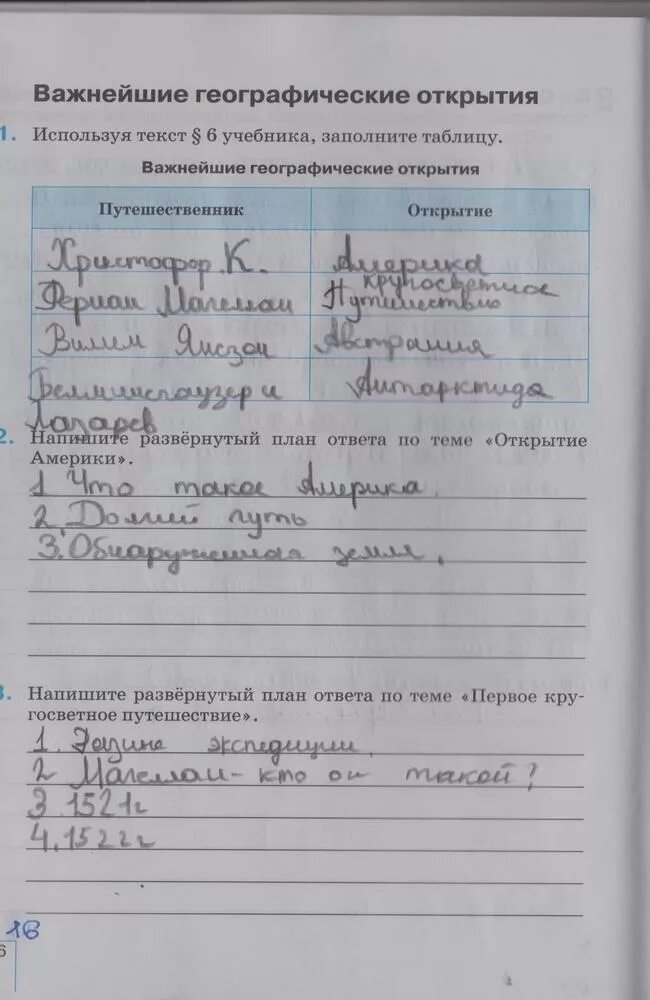 Важнейшие географические открытия
1. Используя текст § 6 учебника, заполните таблицу.
Важнейшие географические открытия
Путешественник Открытие
Христофор К. Америка
Фернан Магеллан кругосветное Путишествию
Вилим Янсзон Австралия
Беллинсгаузер и Антарктида
Лазарев
2. Напишите развёрнутый план ответа по теме «Открытие
Америки».
1 Что такое Америка.
2. Долгий путь
3. Обнаруженная земля.
3. Напишите развёрнутый план ответа по теме «Первое кру-
госветное путешествие».
1. экспедиции.
2 Магеллан - кто он такой?
3 1521г
4. 1522г
16
6